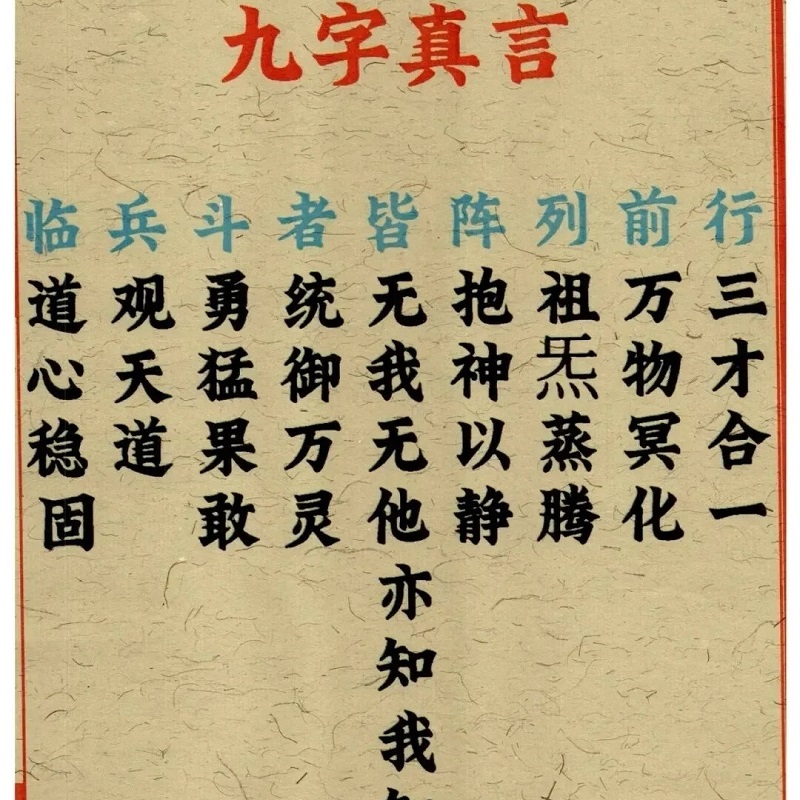 九字真言
临兵斗者皆阵列前行
道心稳固
观天道
勇猛果敢
统御万灵
无我无他亦知我
抱神以静
祖炁蒸腾
万物冥化
三才合一